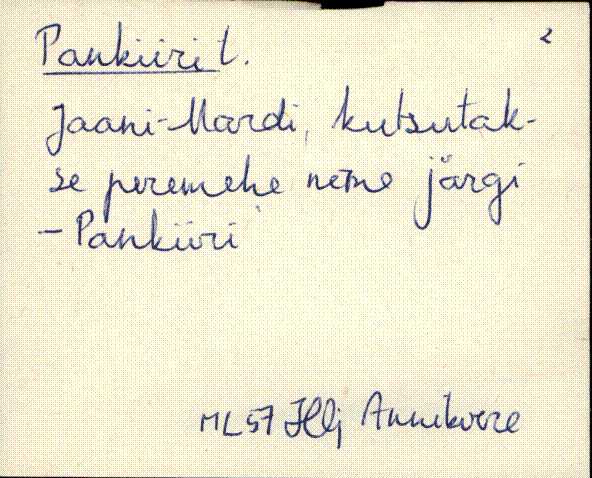 Pankiiri t. 2
Jaani-Mardi, kutsutak-
se peremehe nime järgi
-Pankiiri
ML57 Hlj Annikvere